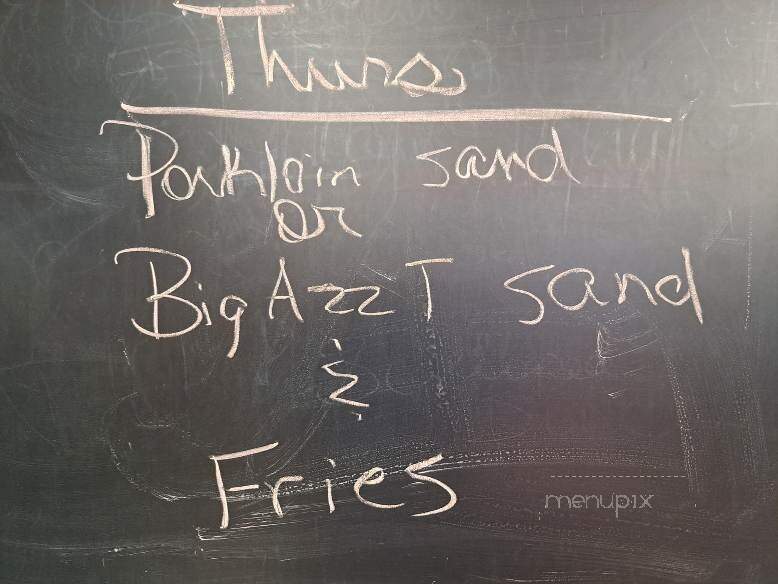 Thurs
Porkloin sand
or
Big Azz T sand
&
Fries
menupix